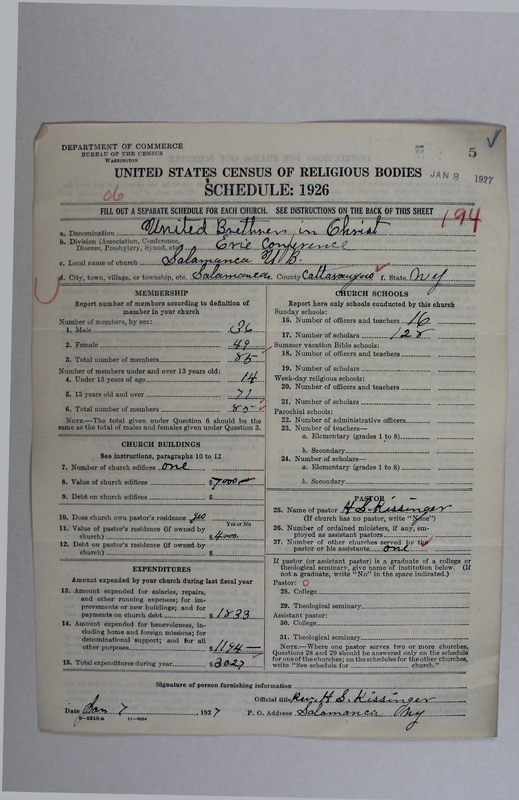 DEPARTMENT OF COMMERCE
BUREAU OF THE CENSUS
WASHINGTON
5
JAN 8 1927
UNITED STATES CENSUS OF RELIGIOUS BODIES
SCHEDULE: 1926
06
194
FILL OUT A SEPARATE SCHEDULE FOR EACH CHURCH. SEE INSTRUCTIONS ON THE BACK OF THIS SHEET
a. Denomination United Brethren in Christ
b. Division (Association, Conference, Diocese, Presbytery, Synod, etc.) Erie Conference
c. Local name of church Salamanca U.B.
d. City, town, village, or township, etc. Salamanca e. County Cattaraugus f. State NY
MEMBERSHIP
Report number of members according to definition of
member in your church
Number of members, by sex:
1. Male 36
2. Female 49
3. Total number of members 85
Number of members under and over 13 years old:
4. Under 13 years of age 14
5. 13 years old and over 71
6. Total number of members 85
NOTE.—The total given under Question 6 should be the
same as the total of males and females given under Question 3.
CHURCH BUILDINGS
See instructions, paragraphs 10 to 12
7. Number of church edifices one
8. Value of church edifices $7000
9. Debt on church edifices $
10. Does church own pastor's residence? yes
Yes or No
11. Value of pastor's residence (if owned by
church) $4000
12. Debt on pastor's residence (if owned by
church) $
EXPENDITURES
Amount expended by your church during last fiscal year
13. Amount expended for salaries, repairs,
and other running expenses; for im-
provements or new buildings; and for
payments on church debt $1833
14. Amount expended for benevolences, in-
cluding home and foreign missions; for
denominational support; and for all
other purposes $1194
15. Total expenditures during year $3027
CHURCH SCHOOLS
Report here only schools conducted by this church
Sunday schools:
16. Number of officers and teachers 16
17. Number of scholars 128
Summer vacation Bible schools:
18. Number of officers and teachers
19. Number of scholars
Week-day religious schools:
20. Number of officers and teachers
21. Number of scholars
Parochial schools:
22. Number of administrative officers
23. Number of teachers—
a. Elementary (grades 1 to 8)
b. Secondary
24. Number of scholars—
a. Elementary (grades 1 to 8)
b. Secondary
PASTOR
25. Name of pastor H S Kissinger
(If church has no pastor, write "None")
26. Number of ordained ministers, if any, em-
ployed as assistant pastors
27. Number of other churches served by the
pastor or his assistants one
If pastor (or assistant pastor) is a graduate of a college or
theological seminary, give name of institution below. (If
not a graduate, write "No" in the space indicated.)
Pastor: O
28. College
29. Theological seminary
Assistant pastor:
30. College
31. Theological seminary
NOTE.—Where one pastor serves two or more churches,
Questions 28 and 29 should be answered only on the schedule
for one of the churches; on the schedules for the other churches,
write "See schedule for church."
Signature of person furnishing information
Official title Rev H S. Kissinger
Date Jan 7, 1927 P. O. Address Salamanca NY